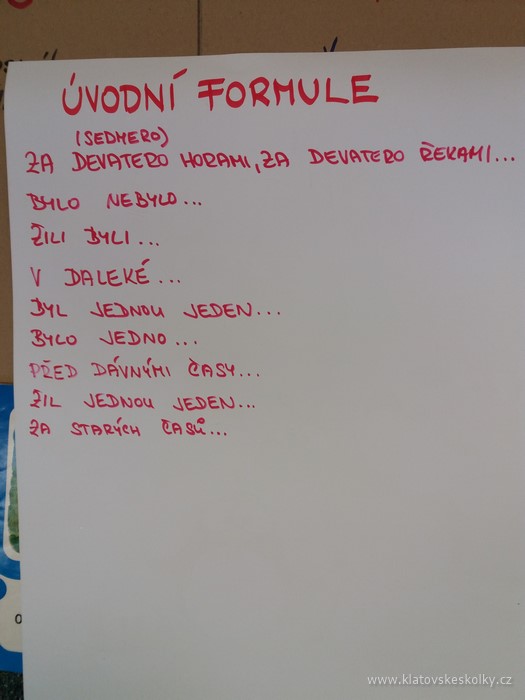 ÚVODNÍ FORMULE
(SEDMERO)
ZA DEVATERO HORAMI, ZA DEVATERO ŘEKAMI...
BYLO NEBYLO...
ŽILI BYLI...
V DALEKÉ...
BYL JEDNOU JEDEN...
BYLO JEDNO...
PŘED DÁVNÝMI ČASY...
ŽIL JEDNOU JEDEN...
ZA STARÝCH ČASŮ...
www.klatovskeskolky.cz